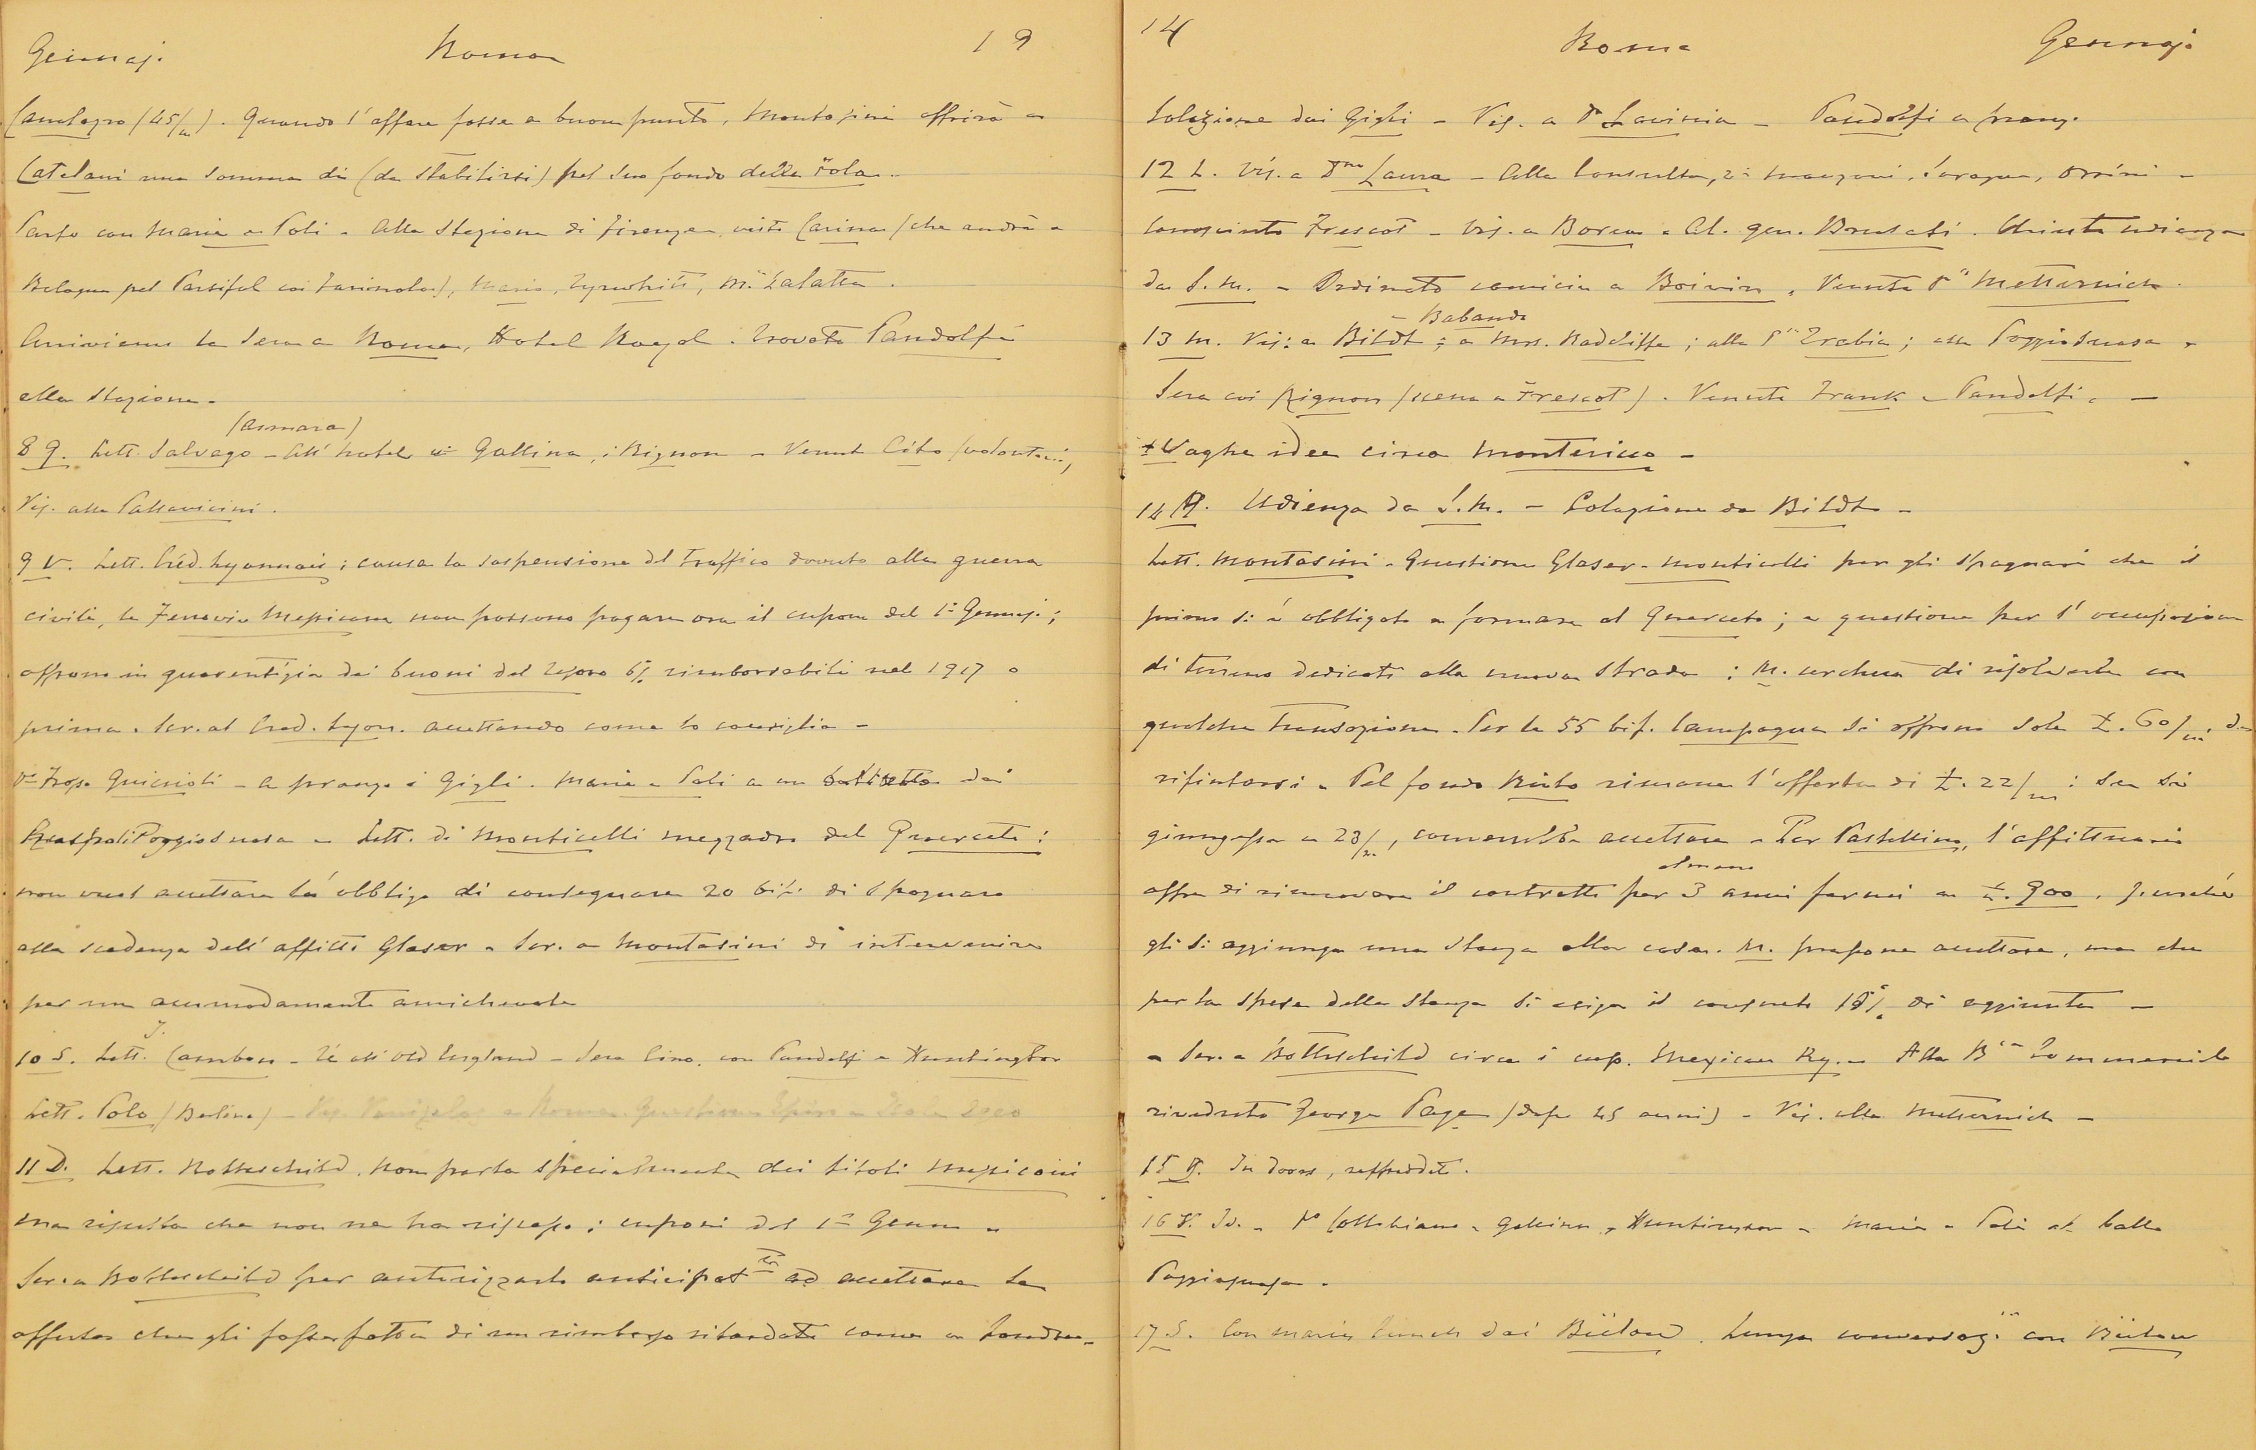 Gennaj. Roma 19
(45/m). Quando l'affare fosse a buon punto, Montasini offrirà a
Catelani una somma di (da stabilirsi) pel suo fondo della Fola.
Parto con Maria e Poli - Alla Stazione di Firenze visto Carina (che andrà a
Bologna pel Parsifal coi Farinola), Mario, Tyrwhitt, M.se Zalatta.
Arriviamo la sera a Roma, Hotel Royal. Trovato Pandolfi
alla stazione.
(Asmara)
8 G. Lett. Salvago - All' hotel i Gallina, i Rignon - Venut Cito (volontar.),
Vis. alla Pallavicini.
9 V. Lett. Créd. Lyonnais: causa la sospensione del traffico dovuto alla guerra
civile, le Ferrovie Messicane non possono pagare ora il cupone del 1° Gennaj.;
offrono in guarentigia dei buoni del tesoro 6% rimborsabili nel 1917 o
prima. Scr. al Cred. Lyon. accettando come lo consiglia -
Guiccioli - a pranzo i Gigli. Maria e Poli a un balletto dai
Poggiosuasa - Lett. di Monticelli mezzadro del Querceto:
non vuol accettare l'obbligo di consegnare 20 bif. di spagnara
alla scadenza dell' affitto Glaser - Scr. a Montasini di intervenire
per un accomodamento amichevole
10 S. Lett. J. Cambon - Tè all' Old England - Sera Cino, con Pandolfi e Huntington
Lett. Polo (Berlino) -
11 D. Lett. Rothschild. Non parla specialmente dei titoli messicani
ma risulta che non ne ha riscosso i cuponi del 1° Genn. -
Scr. a Rothschild per autorizzarlo anticipat.te ad accettare la
offerta che gli fosse fatta di un rimborso ritardato come a Londra.
14 Roma Gennajo
Colazione dai Gigli - Vis. a D.a Lavinia - Pandolfi a pranz.
12 L. Vis. a D.na Laura - Alla Consulta, vi Manzoni, Orsini -
Conosciuto Frescot - Vis. a Borea e al gen. Brusati. Chiesta udienza
da S. M. - Ordinato camicie a Boivin. Venuta P.ssa Metternich.
- Babando
13 M. Vis: a Bildt; a Mrs. Radcliffe; alla P.ssa Trabia; alla Poggiosuasa -
Sera coi Rignon (scena a Frescot). Venuti Frank e Pandolfi. -
+ Vaghe idee circa Montericco -
14 M. Udienza da S. M. - Colazione da Bildt -
Lett. Montasini. Questione Glaser-Monticelli per gli spagnari che il
primo si è obbligato a formare al Querceto; e questione per l'occupazione
di terreno dedicato alla nuova strada: M. cercherà di risolverle con
qualche transazione. Per le 55 bif. Campagna si offrono sole £. 60/m: da
rifiutarsi - Pel fondo Kirto rimane l'offerta di £. 22/m: se si
giungesse a 23/m, converrebbe accettare - Per Pastellino, l'affittuario
almeno
offre di rinnovare il contratto per 3 anni fermi a £. 900, purché
gli si aggiunga una stanza alla casa. M. propone accettare, ma che
per la spesa della stanza si esiga il consueto % di aggiunta -
- Scr. a Rothschild circa i cup. Mexican Ry. - Alla B.ca Commerciale
riveduto George Page (dopo 45 anni) - Vis. alla Metternich -
15 G. In doors, raffreddato.
16 V. Id. - Collobiano - Gallina - Huntington - Maria e Poli al ballo
Poggiosuasa.
17 S. Con Maria lunch dai Bülow. Lunga conversaz.ne con Bülow